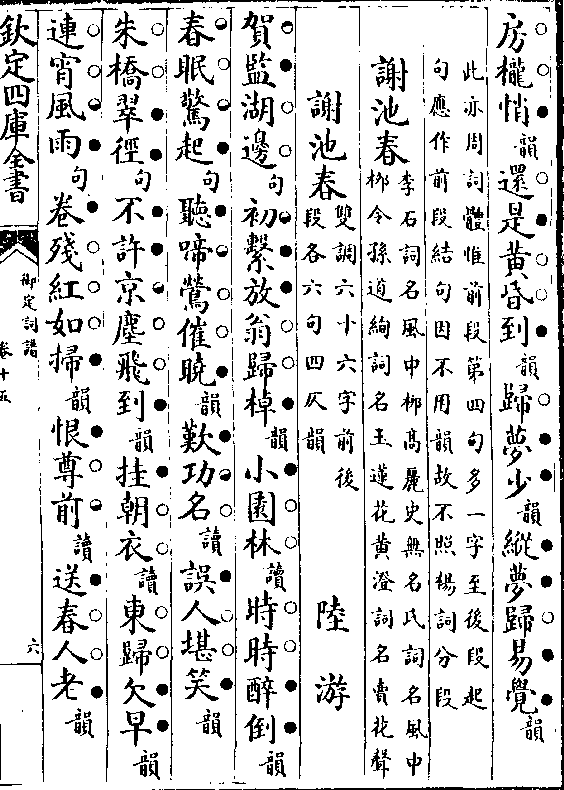 房櫳悄韻還是黃昏到韻歸夢少韻縱夢歸易覺韻
此亦周詞體惟前段第四句多一字至後段起
句應作前段結句因不用韻故不照楊詞分段
謝池春李石詞名風中栁高麗史無名氏詞名風中
栁令孫道絢詞名玉蓮花黃澄詞名賣花聲
謝池春雙調六十六字前後
段各六句四仄韻
陸游
賀監湖邊句初繫放翁歸棹韻小園林讀時時醉倒韻
春眠驚起句聽啼鶯催曉韻歎功名讀誤人堪笑韻
朱橋翠徑句不許京塵飛到韻挂朝衣讀東歸欠早韻
連宵風雨句卷殘紅如掃韻恨尊前讀送春人老韻
欽定四庫全書
御定詞譜
卷十五
六